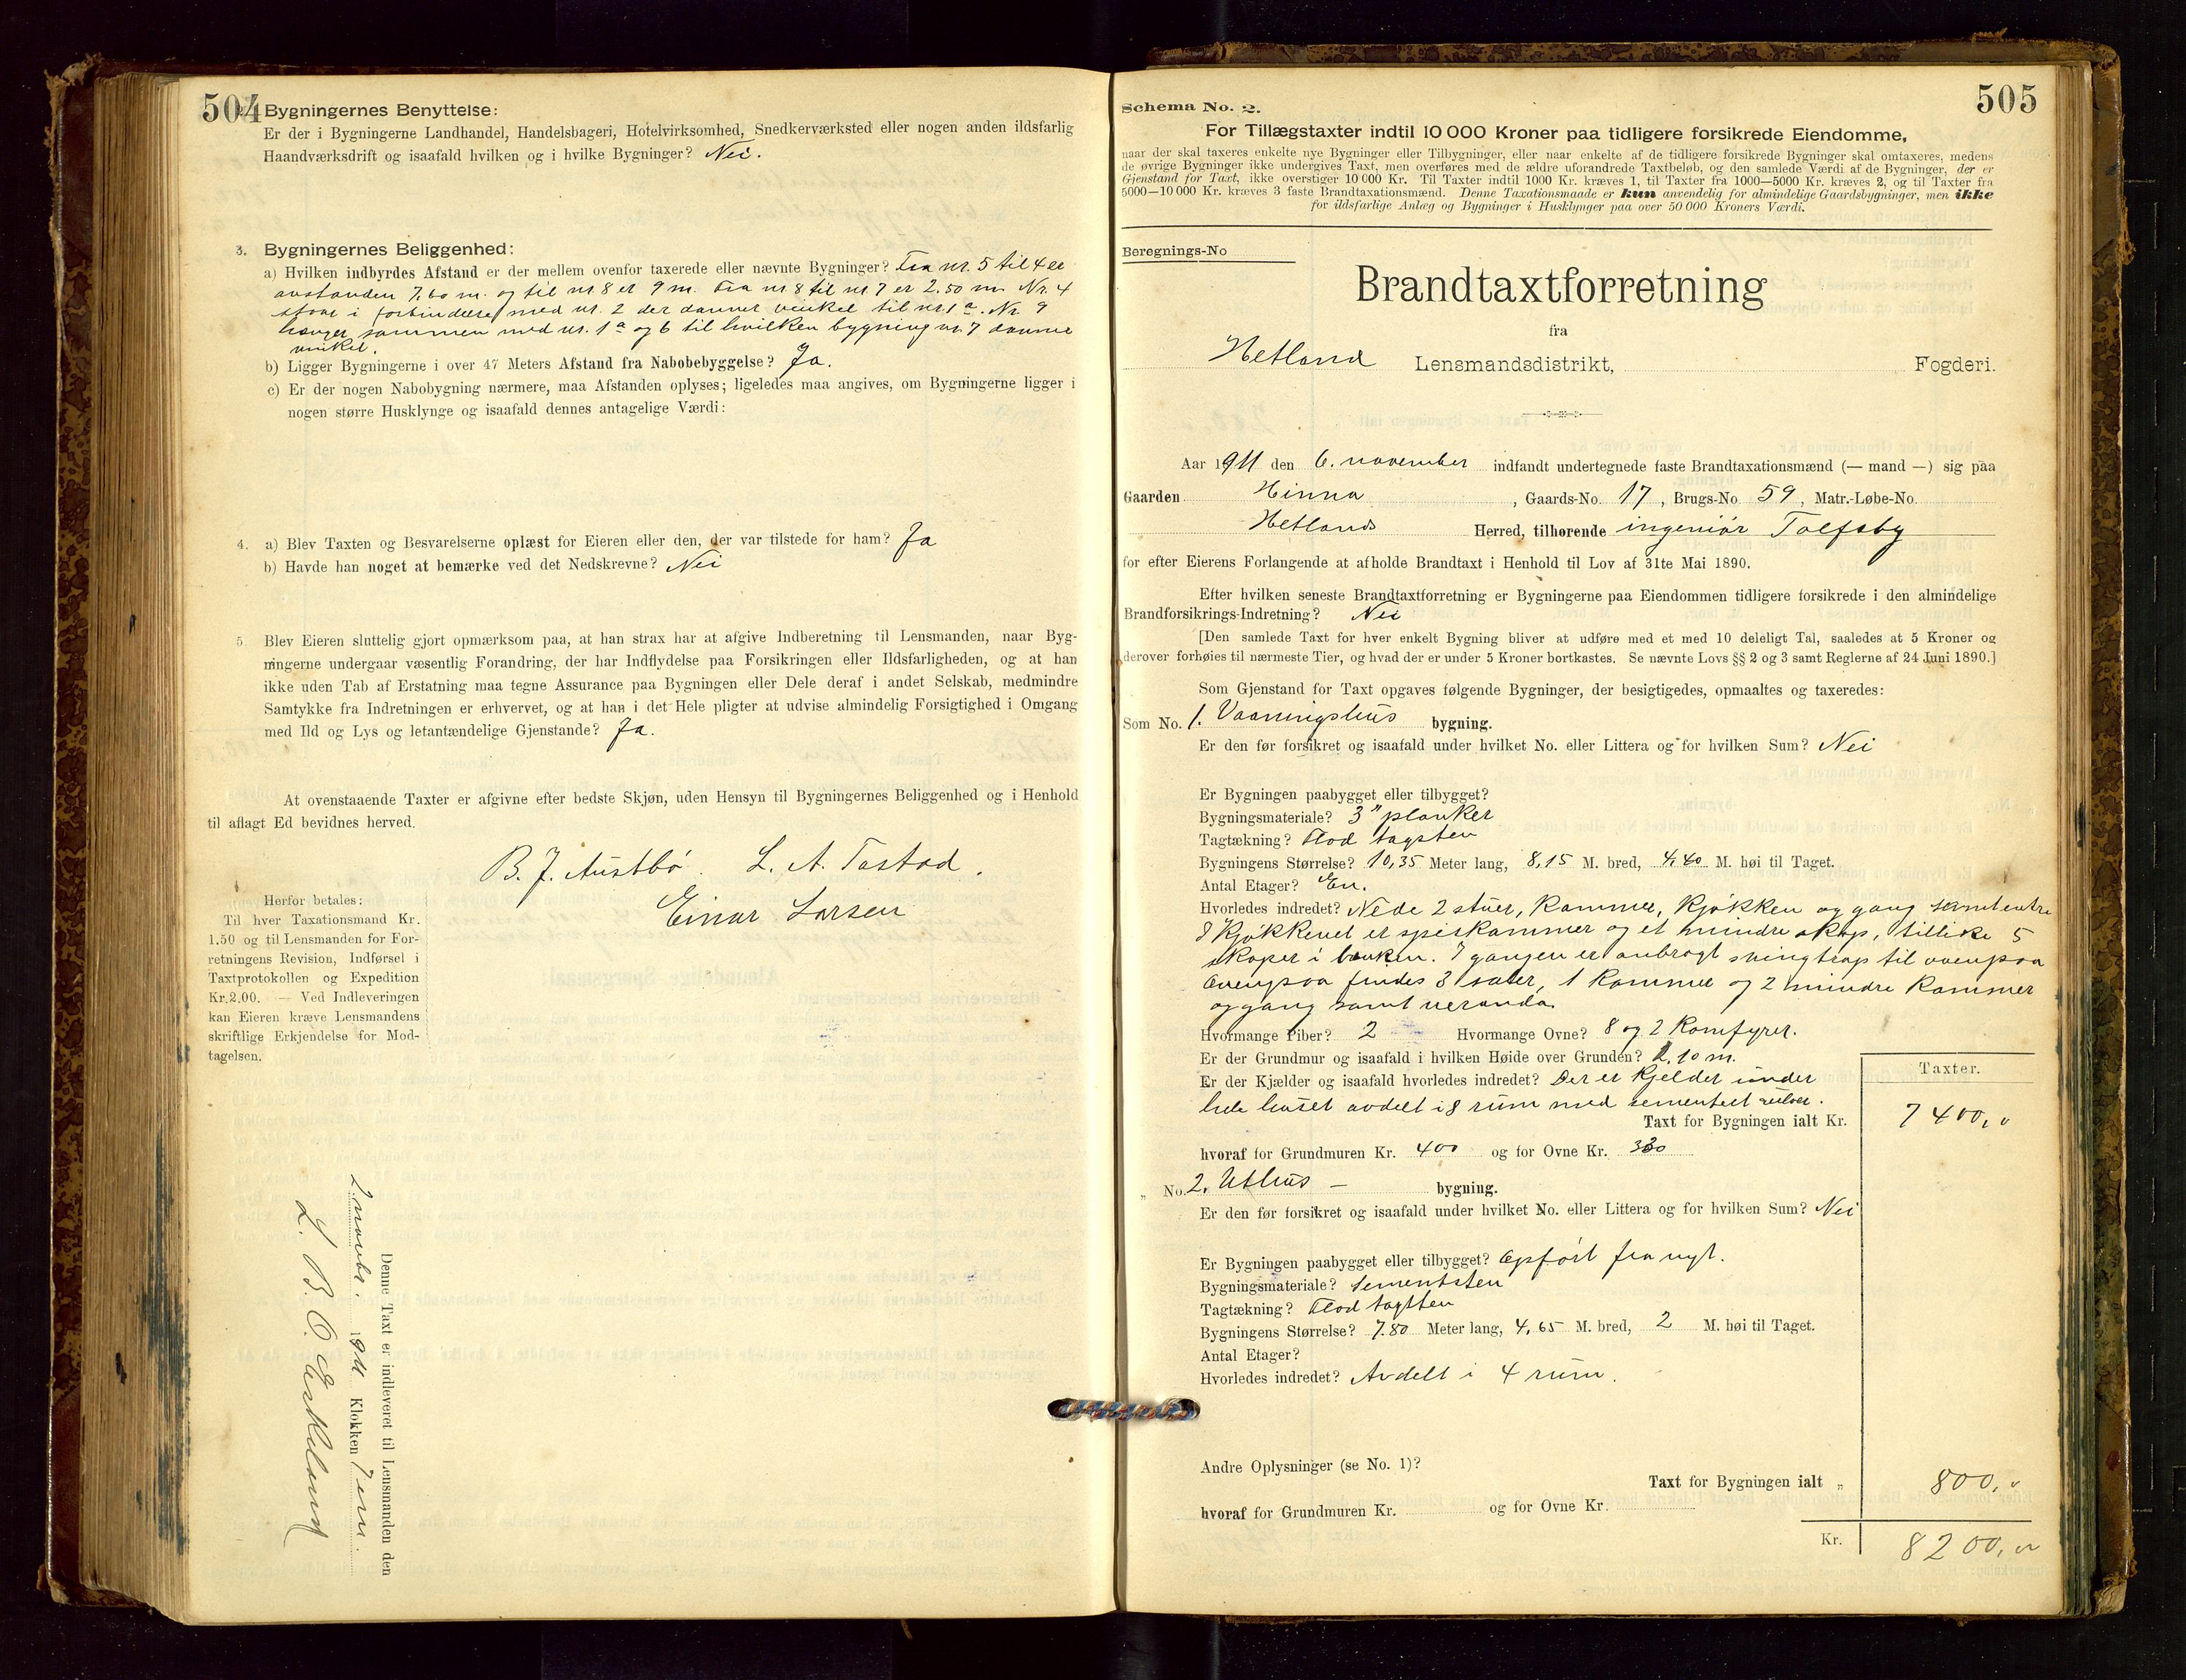 504
Bygningernes Benyttelse:
Er der i Bygningerne Landhandel, Handelsbageri, Hotelvirksomhed, Snedkerværksted eller nogen anden ildsfarlig
Haandværksdrift og isaafald hvilken og i hvilke Bygninger? Nei.
3. Bygningernes Beliggenhed:
a) Hvilken indbyrdes Afstand er der mellem ovenfor taxerede eller nævnte Bygninger? Fra nr. 5 til 4 er
avstanden 7,60 m. og til nr 8 er 9 m. Fra nr 8 til nr 7 er 2.50 m. Nr. 4
staar i forbindelse med nr. 2 der danner vinkel til nr. 1a. Nr. 9
hænger sammen med nr. 1a og 6 til hvilken bygning nr. 7 danner
vinkel.
b) Ligger Bygningerne i over 47 Meters Afstand fra Nabobebyggelse? Ja.
c) Er der nogen Nabobygning nærmere, maa Afstanden oplyses; ligeledes maa angives, om Bygningerne ligger i
nogen større Husklynge og isaafald dennes antagelige Værdi:
4. a) Blev Taxten og Besvarelserne oplæst for Eieren eller den, der var tilstede for ham? Ja
b) Havde han noget at bemærke ved det Nedskrevne? Nei
5. Blev Eieren sluttelig gjort opmærksom paa, at han strax har at afgive Indberetning til Lensmanden, naar Byg-
ningerne undergaar væsentlig Forandring, der har Indflydelse paa Forsikringen eller Ildsfarligheden, og at han
ikke uden Tab af Erstatning maa tegne Assurance paa Bygningen eller Dele deraf i andet Selskab, medmindre
Samtykke fra Indretningen er erhvervet, og at han i det Hele pligter at udvise almindelig Forsigtighed i Omgang
med Ild og Lys og letantændelige Gjenstande? Ja.
At ovenstaaende Taxter er afgivne efter bedste Skjøn, uden Hensyn til Bygningernes Beliggenhed og i Henhold
til aflagt Ed bevidnes herved.
B. J. Austbø. L. A. Tastad.
Einar Larsen
Herfor betales:
Til hver Taxationsmand Kr.
1.50 og til Lensmanden for For-
retningens Revision, Indførsel i
Taxtprotokollen og Expedition
Kr. 2.00. — Ved Indleveringen
kan Eieren kræve Lensmandens
skriftlige Erkjendelse for Mod-
tagelsen.
Denne Taxt er indleveret til Lensmanden den
2. novebr. 1911 Klokken 7 em.
L. B. O. Eskeland
505
Schema No. 2.
For Tillægstaxter indtil 10 000 Kroner paa tidligere forsikrede Eiendomme,
naar der skal taxeres enkelte nye Bygninger eller Tilbygninger, eller naar enkelte af de tidligere forsikrede Bygninger skal omtaxeres, medens
de øvrige Bygninger ikke undergives Taxt, men overføres med de ældre uforandrede Taxtbeløb, og den samlede Værdi af de Bygninger, der er
Gjenstand for Taxt, ikke overstiger 10 000 Kr. Til Taxter indtil 1000 Kr. kræves 1, til Taxter fra 1000—5000 Kr. kræves 2, og til Taxter fra
5000—10 000 Kr. kræves 3 faste Brandtaxationsmænd. Denne Taxationsmaade er kun anvendelig for almindelige Gaardsbygninger, men ikke
for ildsfarlige Anlæg og Bygninger i Husklynger paa over 50 000 Kroners Værdi.
Beregnings-No
Brandtaxtforretning
fra
Hetland Lensmandsdistrikt, Fogderi.
Aar 1911 den 6. november indfandt undertegnede faste Brandtaxationsmænd (— mand —) sig paa
Gaarden Hinna, Gaards-No. 17, Brugs-No 59, Matr.-Løbe-No.
Hetlands Herred, tilhørende ingeniør Tolfsby
for efter Eierens Forlangende at afholde Brandtaxt i Henhold til Lov af 31te Mai 1890.
Efter hvilken seneste Brandtaxtforretning er Bygningerne paa Eiendommen tidligere forsikrede i den almindelige
Brandforsikrings-Indretning? Nei
[Den samlede Taxt for hver enkelt Bygning bliver at udføre med et med 10 deleligt Tal, saaledes at 5 Kroner og
derover forhøies til nærmeste Tier, og hvad der er under 5 Kroner bortkastes. Se nævnte Lovs §§ 2 og 3 samt Reglerne af 24 Juni 1890.]
Som Gjenstand for Taxt opgaves følgende Bygninger, der besigtigedes, opmaaltes og taxeredes:
Som No. 1. Vaaningshus bygning.
Er den før forsikret og isaafald under hvilket No. eller Littera og for hvilken Sum? Nei
Er Bygningen paabygget eller tilbygget?
Bygningsmateriale? 3" planker
Tagtækning? Flod tagsten
Bygningens Størrelse? 10,35 Meter lang, 8,15 M. bred, 4.40 M. høi til Taget.
Antal Etager? En.
Hvorledes indredet? Nede 2 stuer, Kammer, Kjøkken og gang samt entre
I Kjøkkenet er spiskammer og et mindre skap, tillike 5
skaper i bænken. I gangen er anbragt svingtrap til ovenpaa
Ovenpaa findes 3 saler, 1 Kammer og 2 mindre Kammer
og gang samt veranda
Hvormange Piber? 2 Hvormange Ovne? 8 og 2 Komfyrer.
Er der Grundmur og isaafald i hvilken Høide over Grunden? 2,10 m.
Er der Kjælder og isaafald hvorledes indredet? Der er Kjelder under
hele huset avdelt i 8 rum med sementert gulver.
Taxter.
Taxt for Bygningen ialt Kr. 7400,
hvoraf for Grundmuren Kr. 400 og for Ovne Kr. 330
„ No. 2. Uthus — bygning.
Er den før forsikret og isaafald under hvilket No. eller Littera og for hvilken Sum? Nei
Er Bygningen paabygget eller tilbygget? Opført fra nyt.
Bygningsmateriale? Sementsten
Tagtækning? Flod tagsten
Bygningens Størrelse? 7.80 Meter lang, 4,65 M. bred, 2 M. høi til Taget.
Antal Etager?
Hvorledes indredet? Avdelt i 4 rum.
Andre Oplysninger (se No. 1)?
Taxt for Bygningen ialt „ 800,
hvoraf for Grundmuren Kr. og for Ovne Kr.
Kr. 8200,